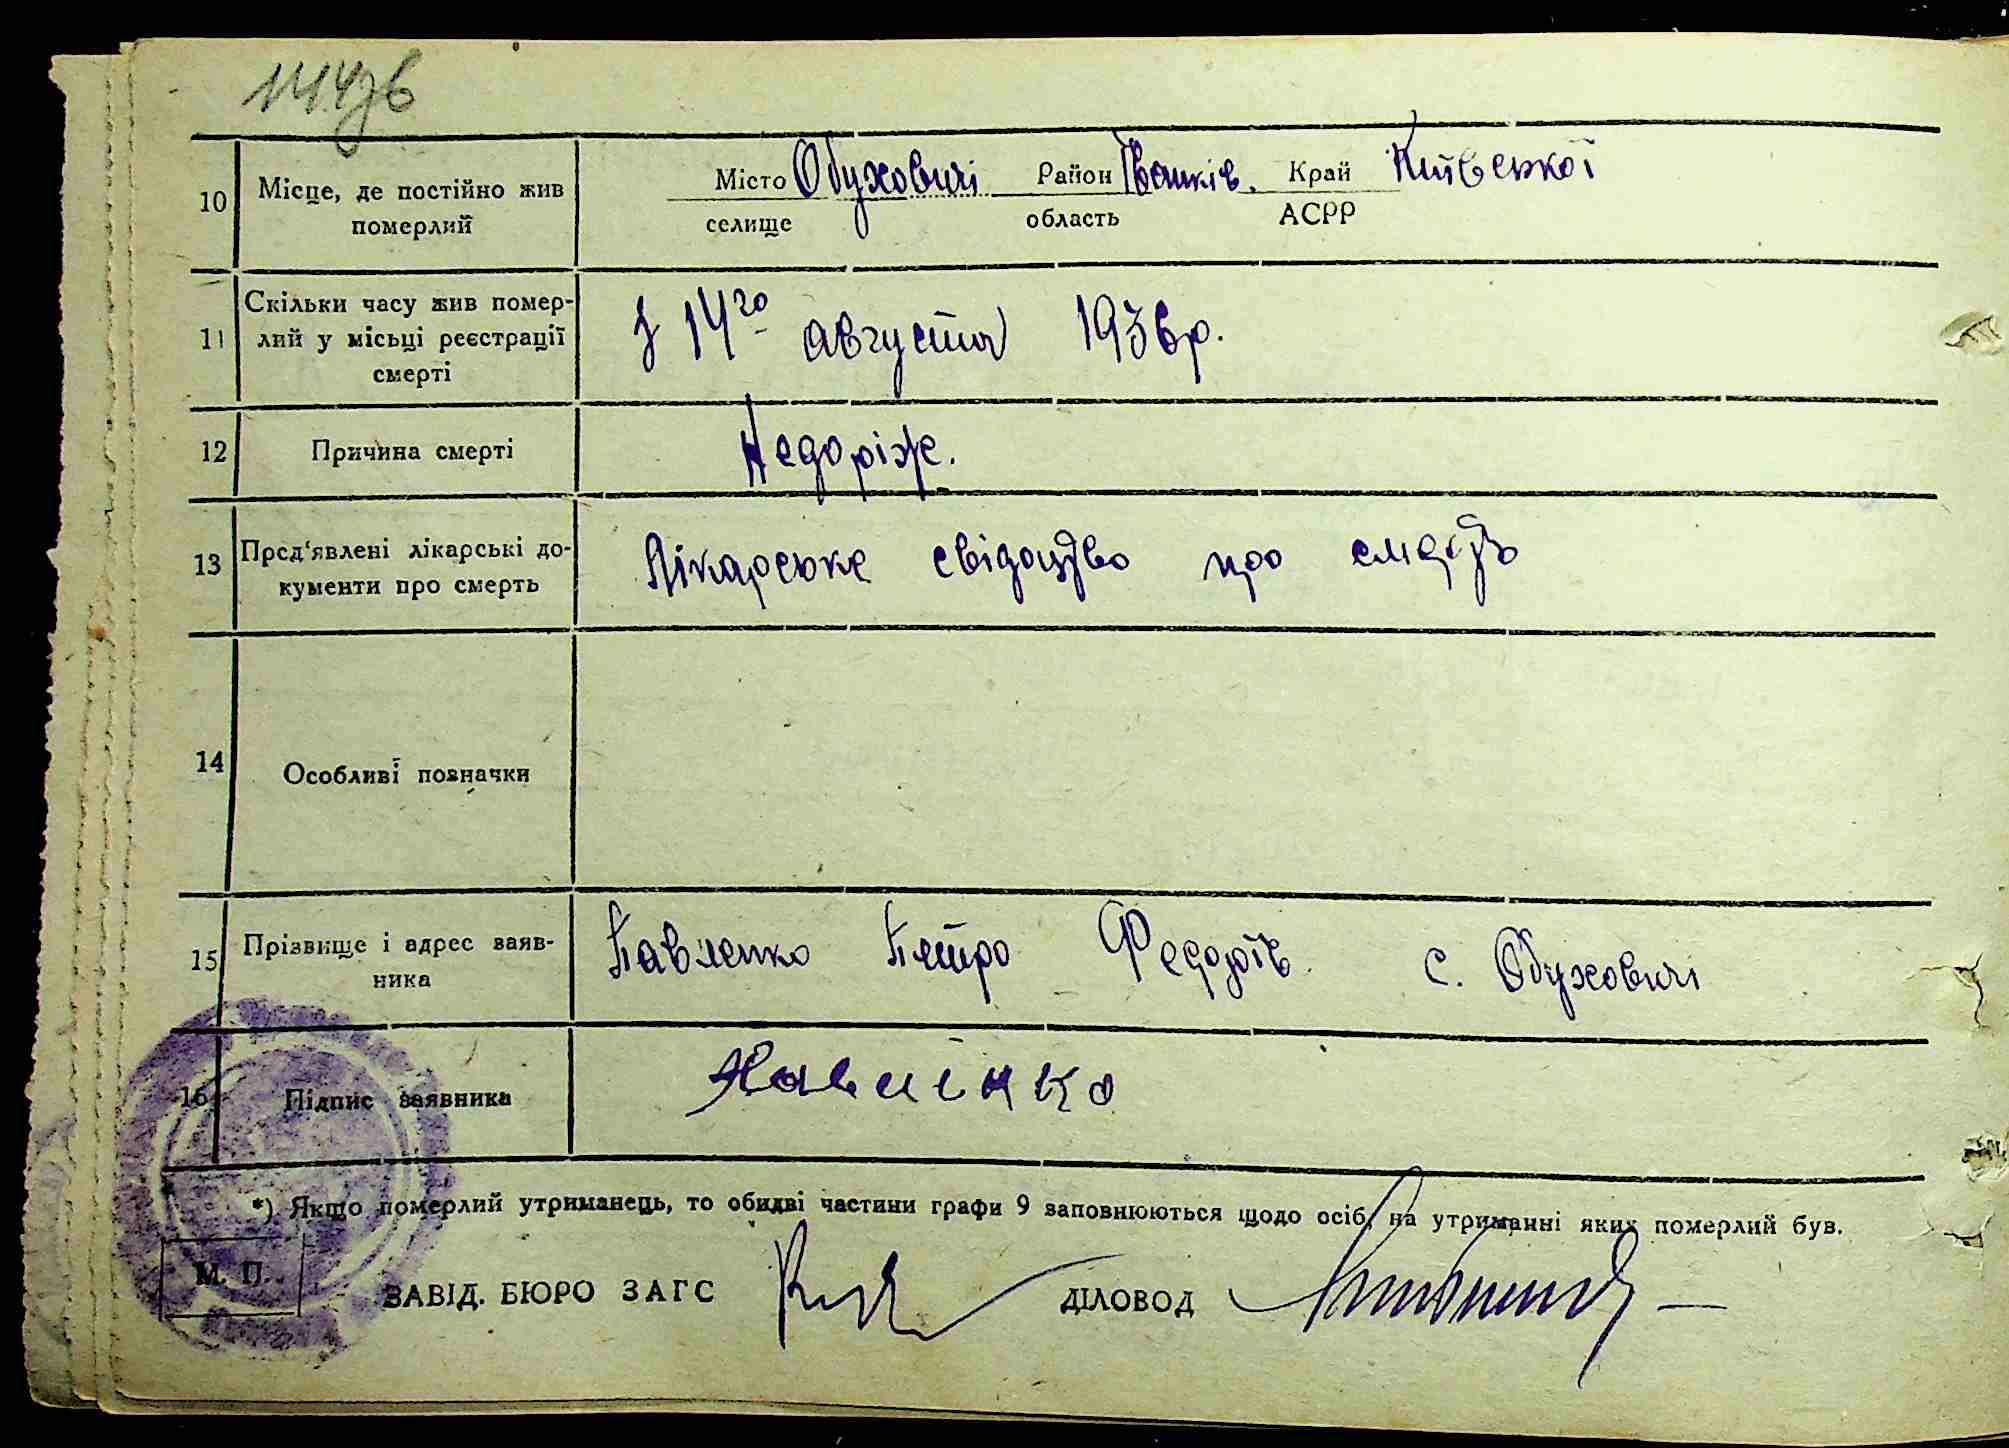 10 Місце, де постійно жив Місто Обуховичі Район Іванків. Край Київської
померлий селище область АСРР
Скільки часу жив помер-
11 лий у місьці реєстрації з 14го августа 1936 р.
смерті
12 Причина смерті Недоріж.
13 Пред'явлені лікарські до- Лікарське свідоцтво про смерть
кументи про смерть
14 Особливі позначки
15 Прізвище і адрес заяв- Павленко Петро Федор с. Обуховичі
ника
16 Підпис заявника Павлінко
*) Якщо померлий утриманець, то обидві частини графи 9 заповнюються щодо осіб, на утриманні яких померлий був.
М. П. ЗАВІД. БЮРО ЗАГС ДІЛОВОД